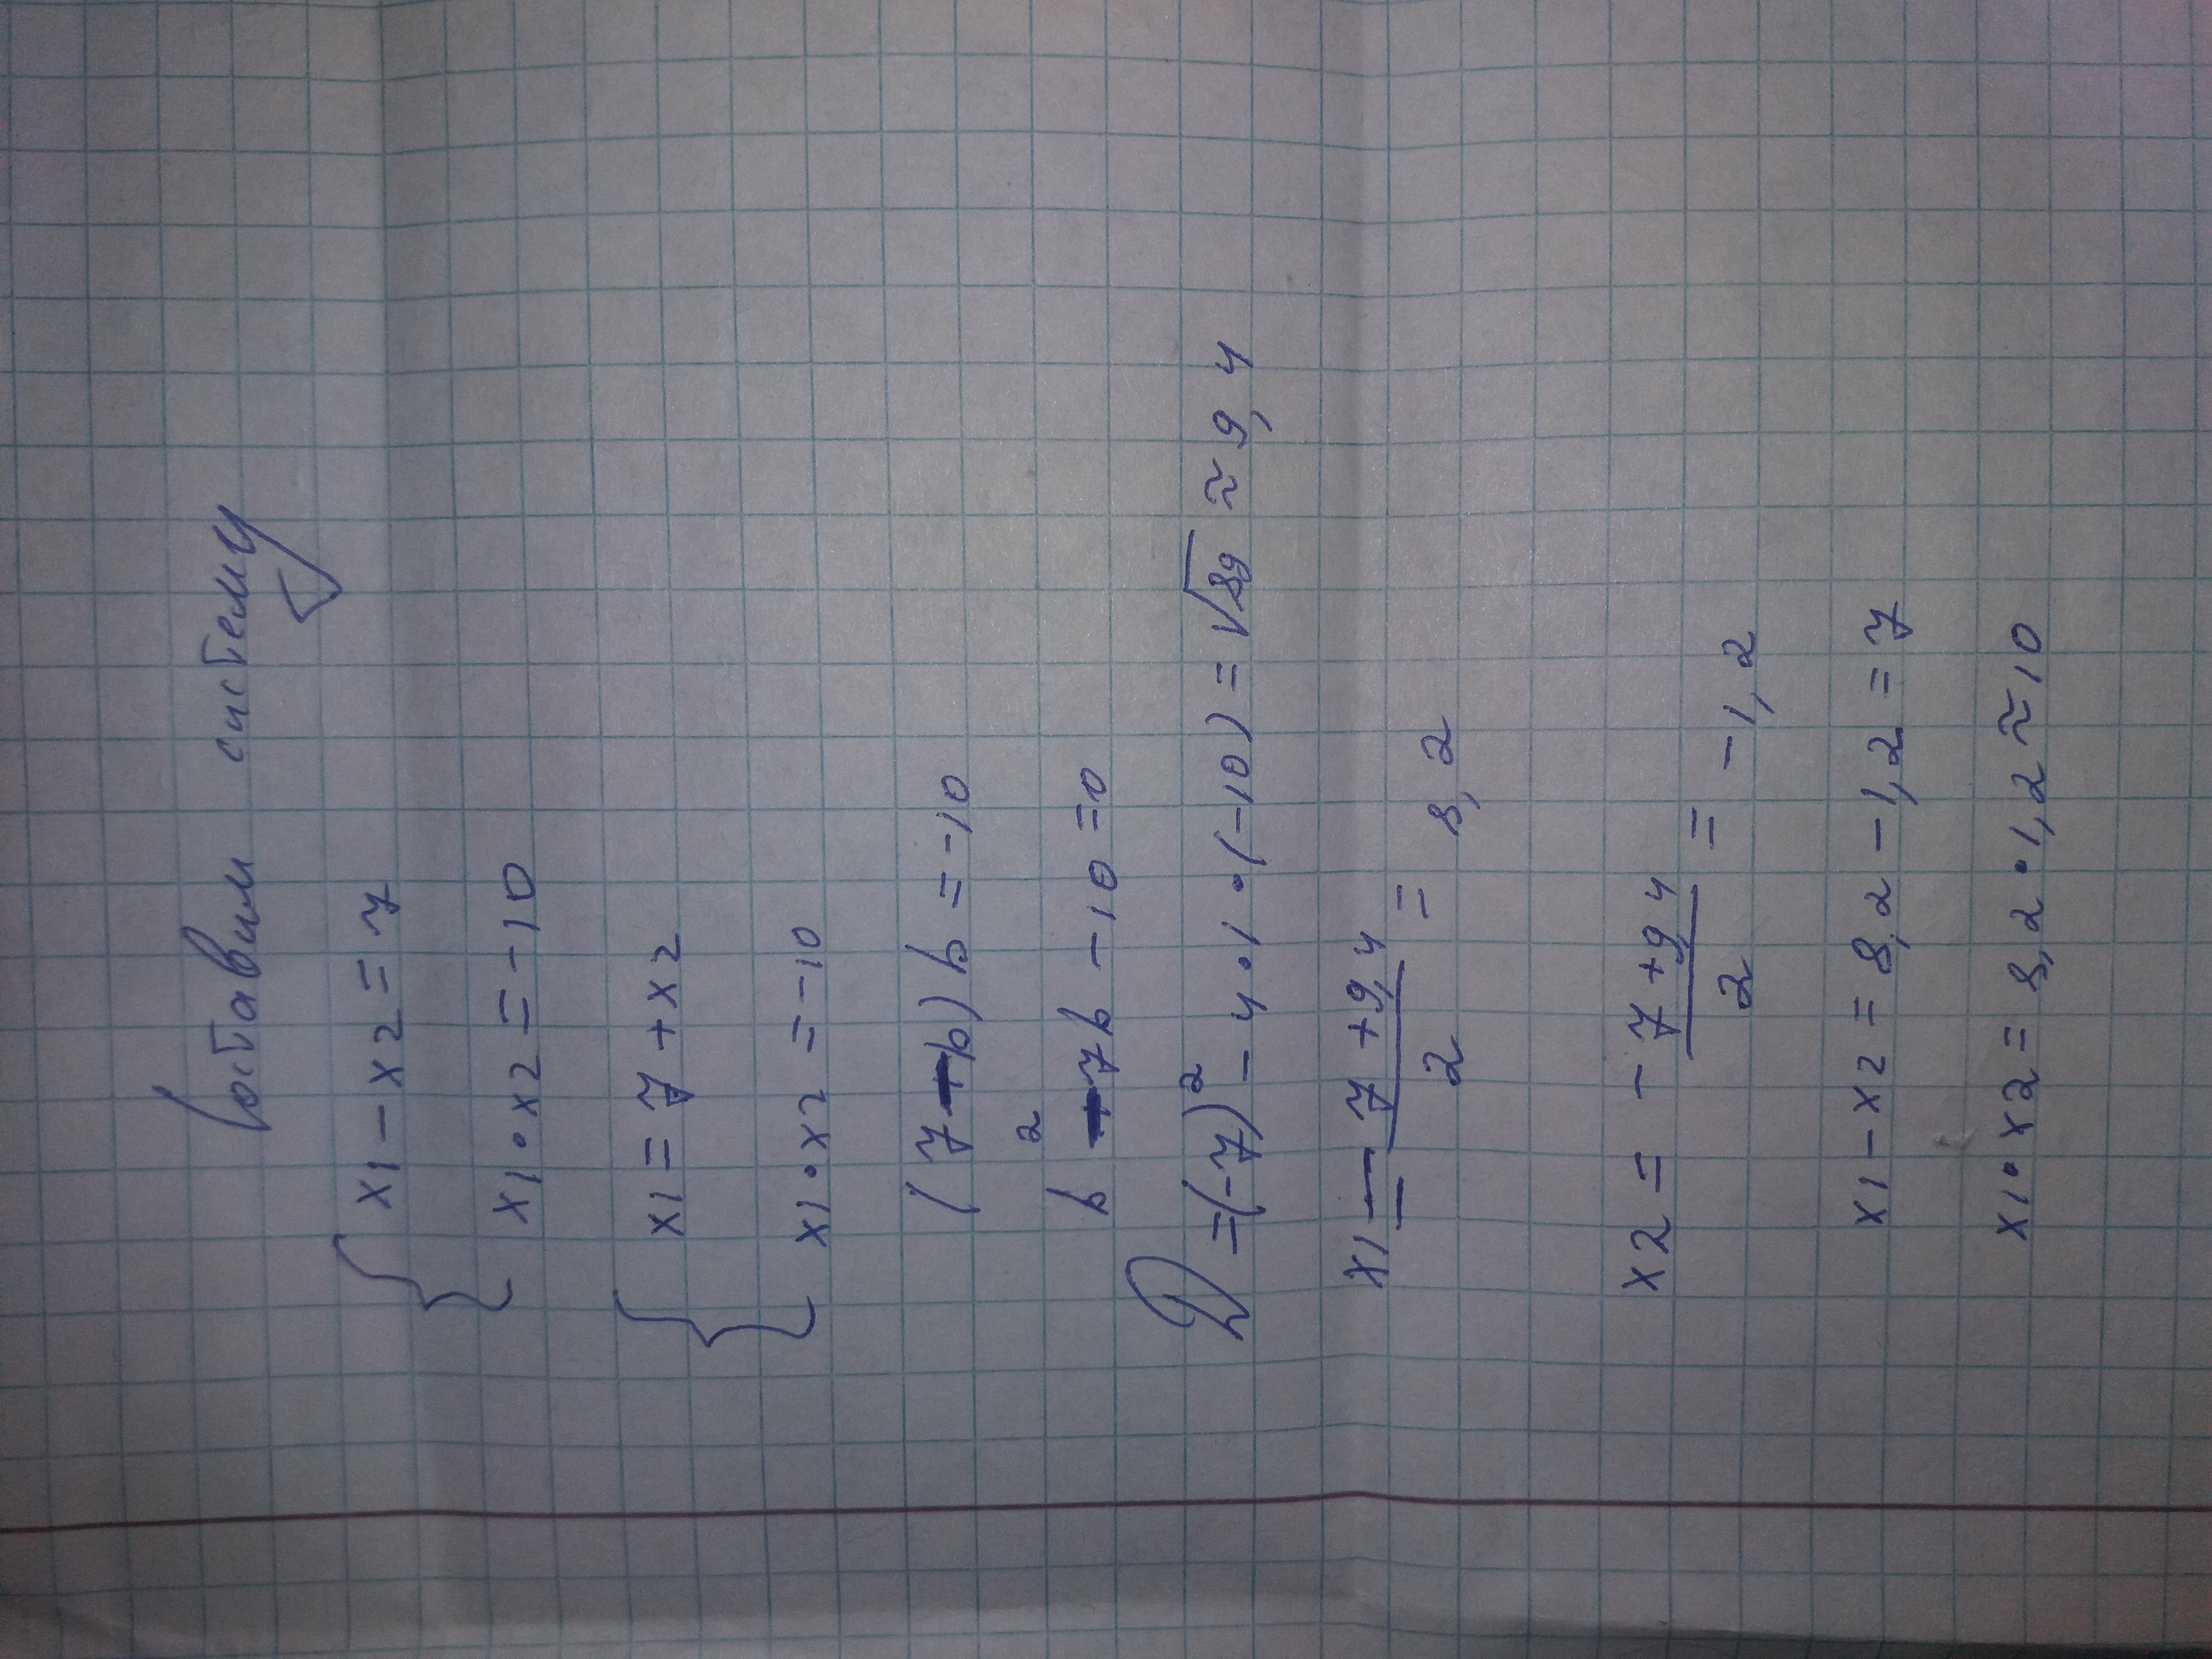 Составим систему
{ x1 - x2 = 7
x1 • x2 = -10
{ x1 = 7 + x2
x1 • x2 = -10
(7-b) b = -10
b² - 7b - 10 = 0
D = (-7)² - 4 • 1 • (-10) = √89 ≈ 9,4
x1 = 7 + 9,4 / 2 = 8,2
x2 = - 7 + 9,4 / 2 = -1,2
x1 - x2 = 8,2 - 1,2 = 7
x1 • x2 = 8,2 • 1,2 ≈ 10